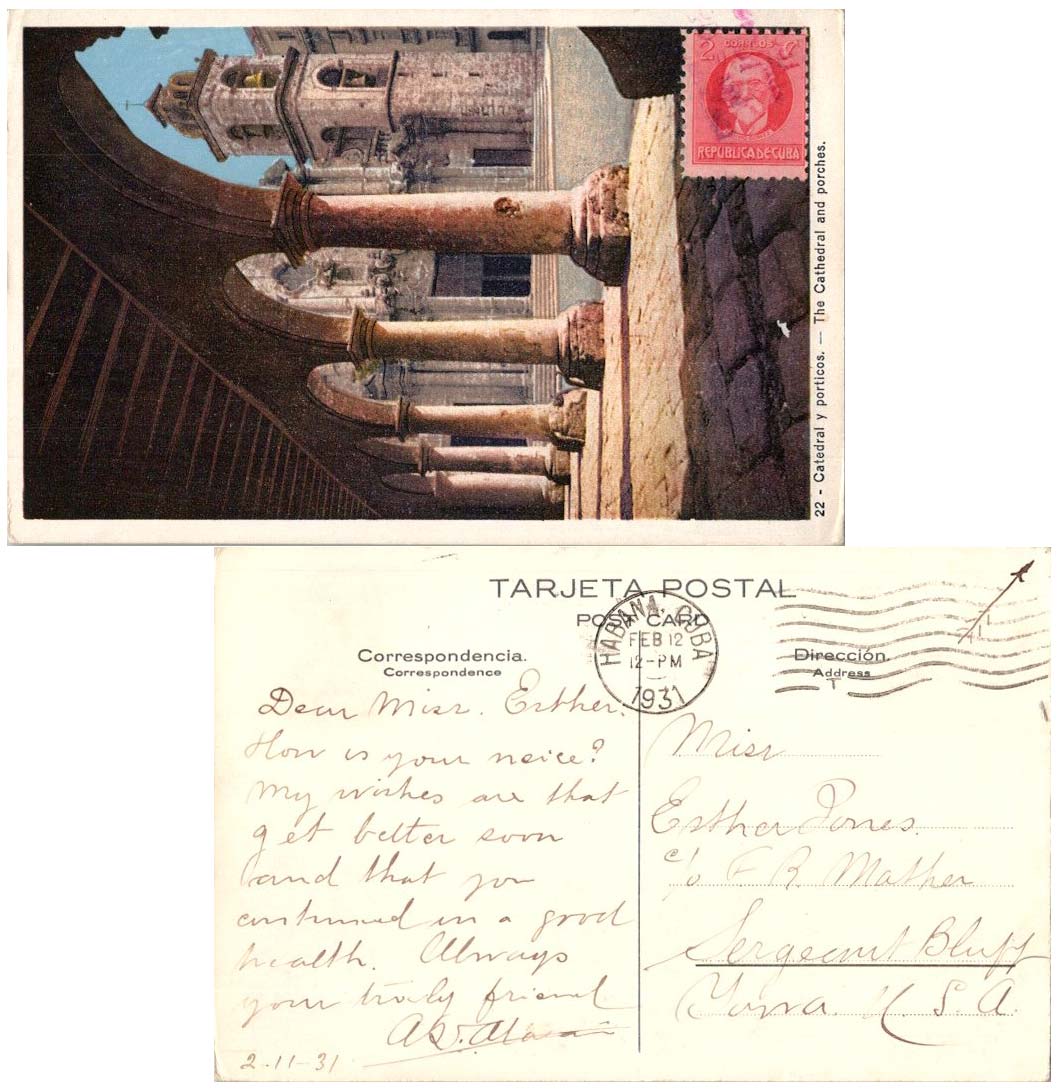 2 CORREOS C
REPUBLICA DE CUBA
22 - Catedral y porticos. — The Cathedral and porches.
TARJETA POSTAL
POST CARD
HABANA, CUBA
FEB 12
12-PM
1931
Correspondencia.
Correspondence
Dear Miss. Esther.
How is your neice?
My wishes are that
get better soon
and that you
continued in a good
health. Always
your truly friend
2-11-31
Dirección.
Address
T
Miss
Esther Jones.
c/o F. R. Mather
Sergeant Bluff
Iowa. U. S. A.